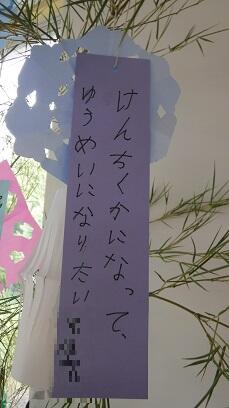 けんちくかになって、
ゆうめいになりたい